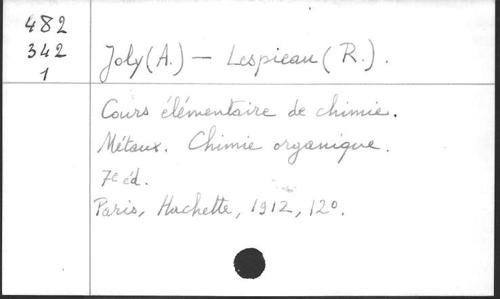 482
342
1
Joly (A.) — Lespieau (R.).
Cours élémentaire de chimie.
Métaux. Chimie organique.
7e éd.
Paris, Hachette, 1912, 12º.